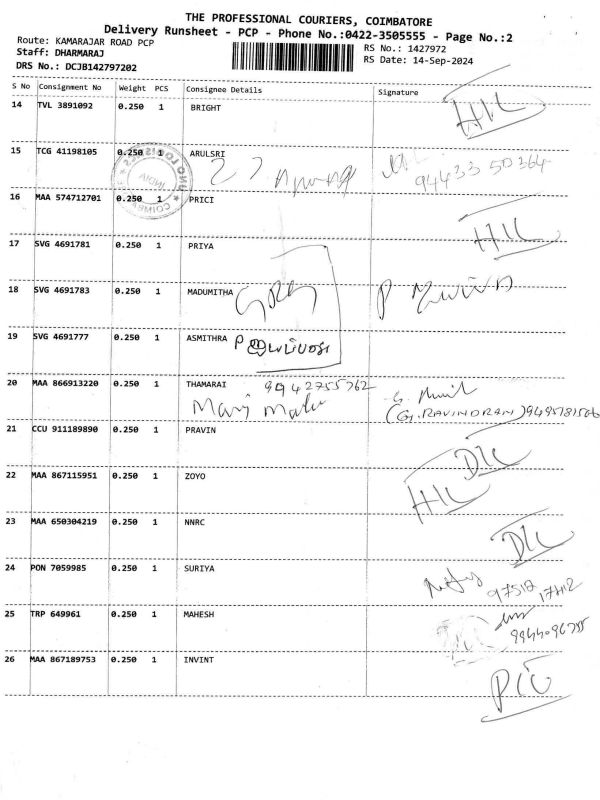 THE PROFESSIONAL COURIERS, COIMBATORE
Delivery Runsheet - PCP - Phone No.:0422-3505555 - Page No.:2
Route: KAMARAJAR ROAD PCP
RS No.: 1427972
Staff: DHARMARAJ
RS Date: 14-Sep-2024
DRS No.: DCJB142797202
S No Consignment No Weight PCS Consignee Details Signature
14 TVL 3891092 0.250 1 BRIGHT
15 TCG 41198105 0.250 1 ARULSRI
94433 50364
16 MAA 574712701 0.250 1 PRICI
17 SVG 4691781 0.250 1 PRIYA
18 SVG 4691783 0.250 1 MADUMITHA
19 SVG 4691777 0.250 1 ASMITHRA
20 MAA 866913220 0.250 1 THAMARAI 9942755762
(G. RAVINDRAN) 9495781566
21 CCU 911189890 0.250 1 PRAVIN
22 MAA 867115951 0.250 1 ZOYO
23 MAA 650304219 0.250 1 NNRC
24 PON 7059985 0.250 1 SURIYA
97512 17412
25 TRP 649961 0.250 1 MAHESH
26 MAA 867189753 0.250 1 INVINT